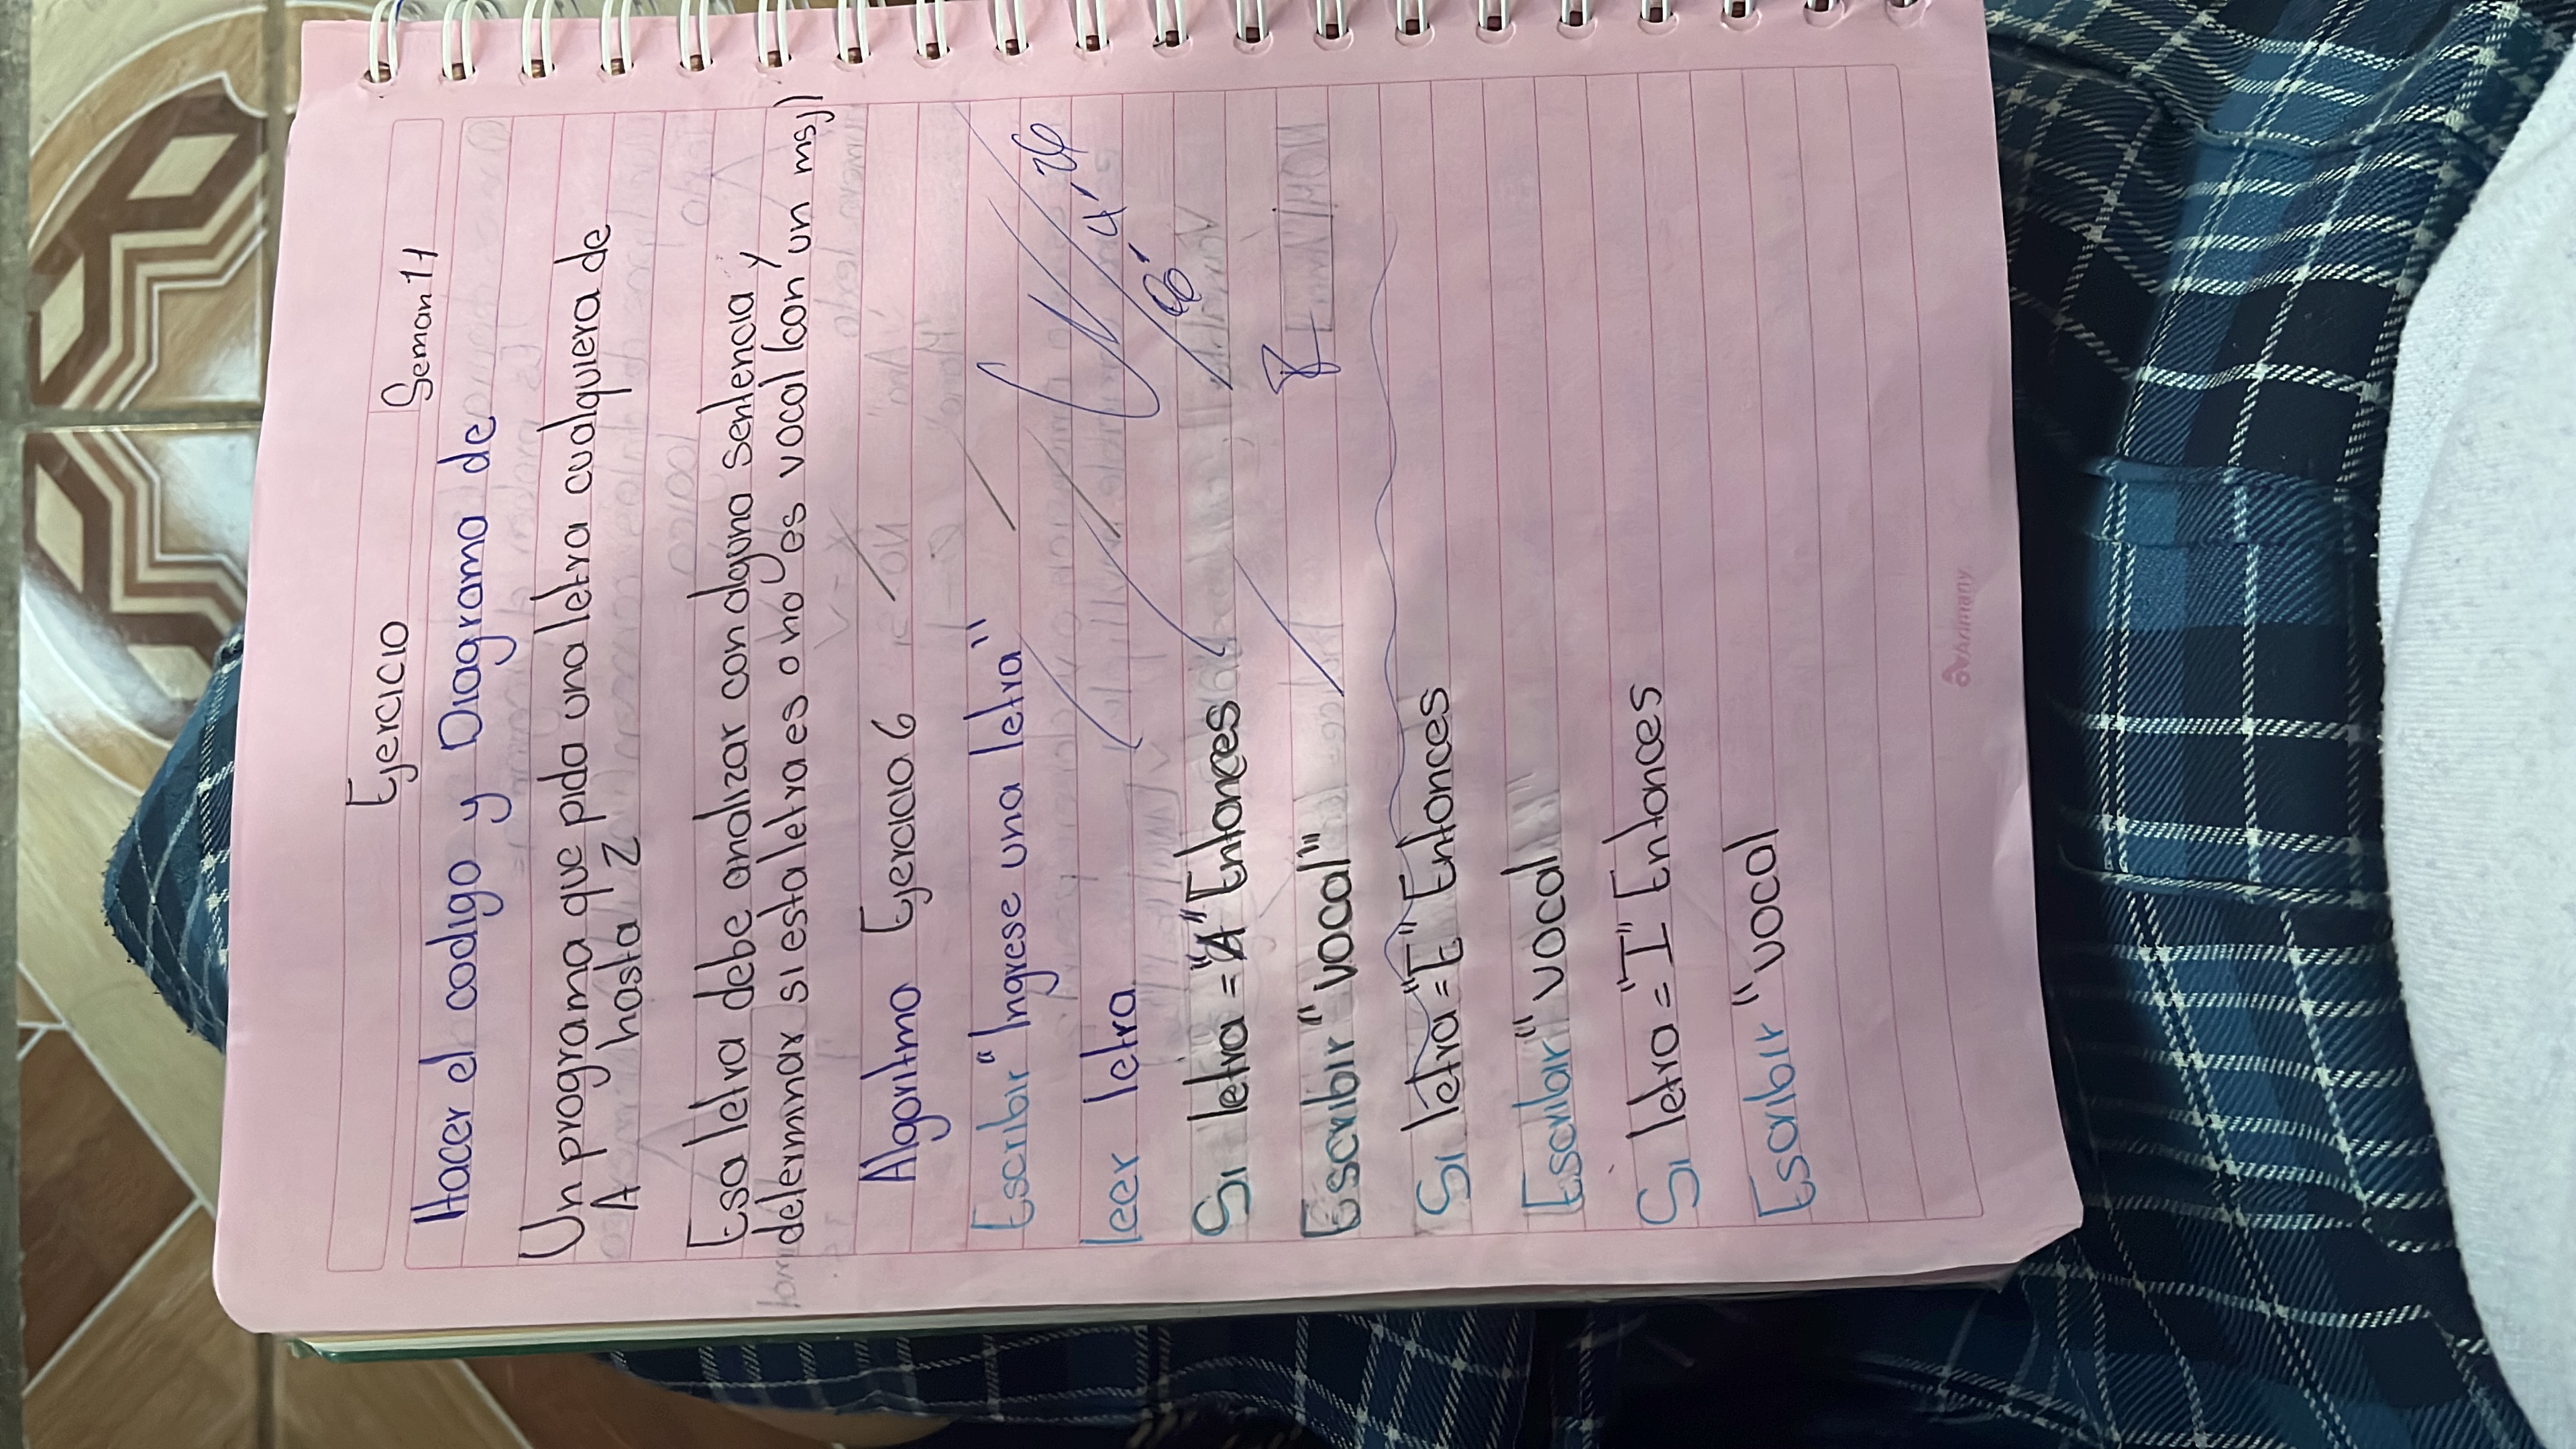 Ejercicio
Seman 11
Hacer el codigo y Diagrama de
Un programa que pida una letra cualquiera de
A hasta Z
Esa letra debe analizar con alguna sentencia y
determinar si esta letra es o no es vocal (con un msj)
Algoritmo Ejercicio 6
Escribir "Ingrese una letra"
leer letra
Si letra = "A" Entonces
Escribir "vocal"
Si letra = "E" Entonces
Escribir "vocal
Si letra = "I" Entonces
Escribir "vocal
Arimany